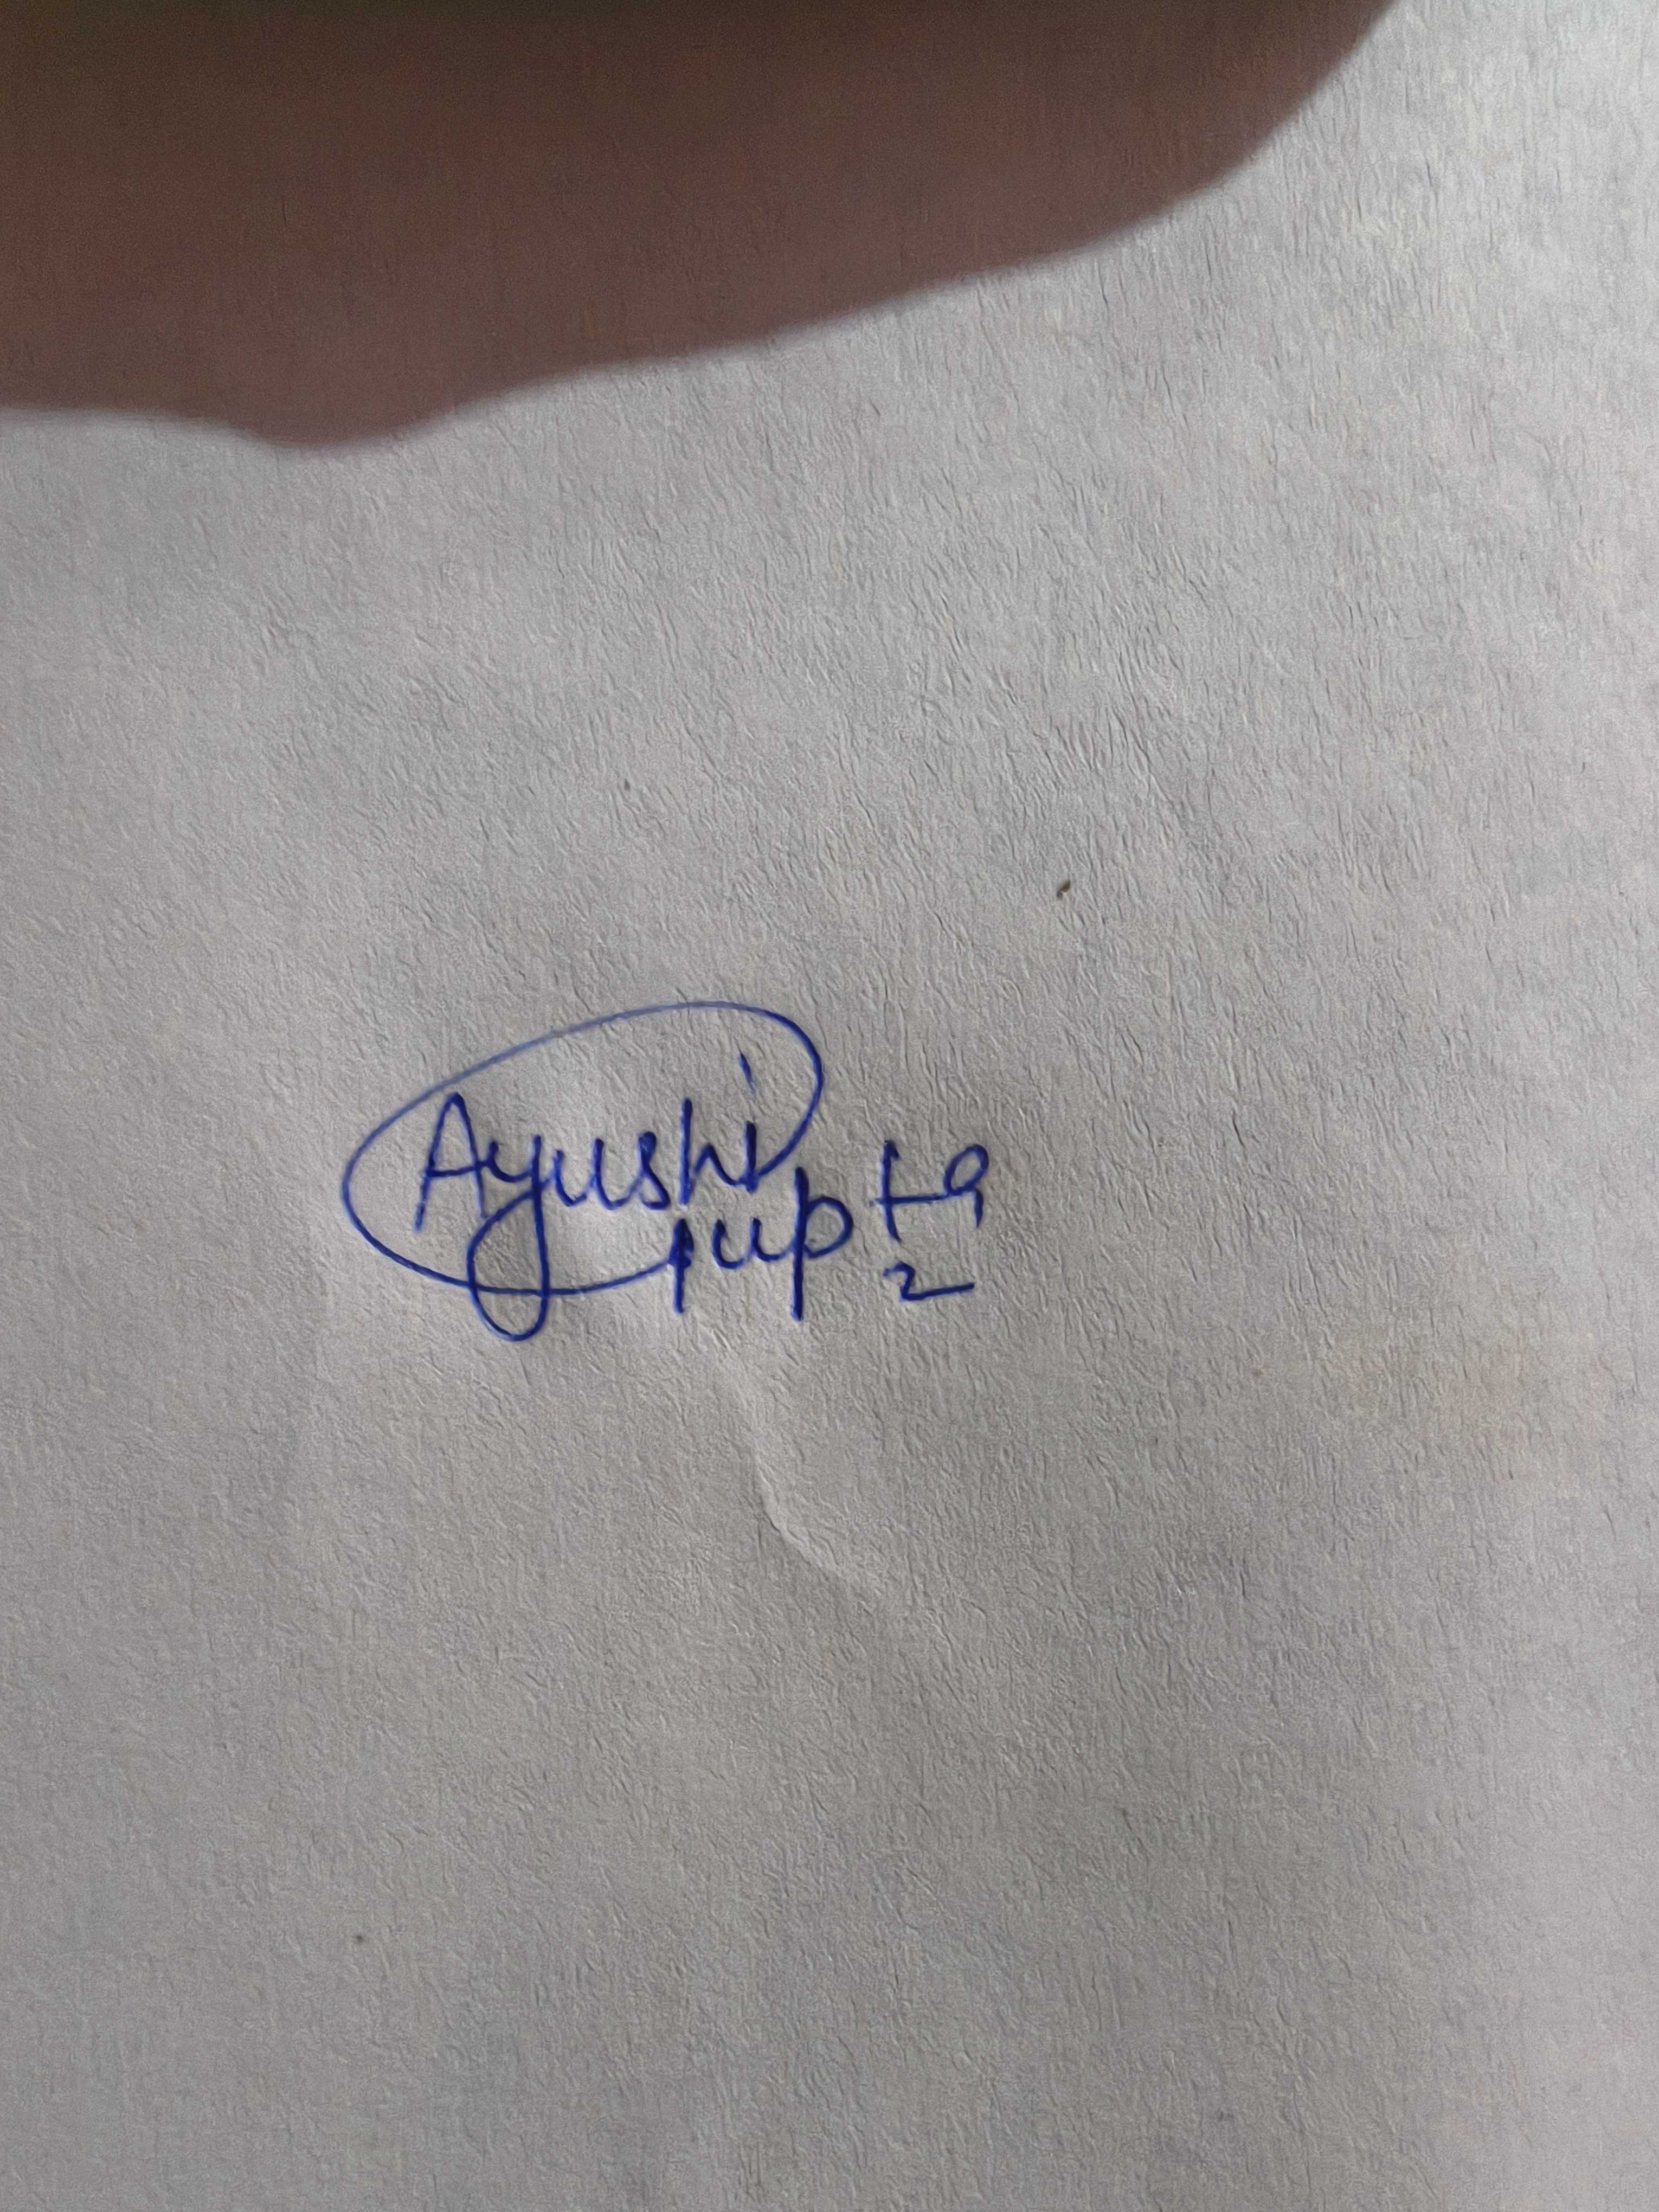 Ayushi
Gupta
2